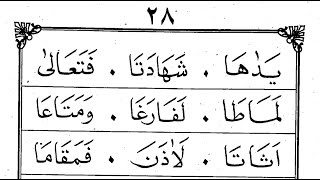 ٢٨
يَدٰهَا . شَهَادَتَا . فَتَعَالٰى
لَمَاطَا . لَفَارِغَا . وَمَتَاعَا
اَثَاثَا . لَاَذَنَ . فَمَقَامَا